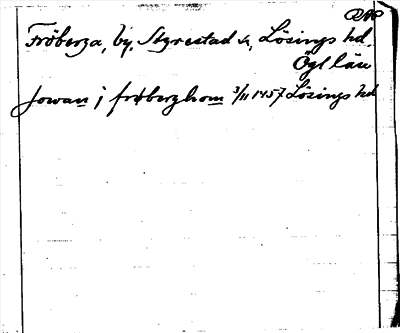 Fröberga, by, Styrestad s., Lösings hd.
Ögl län
Jowan j frøberghom 3/11 1457 Lösings hd